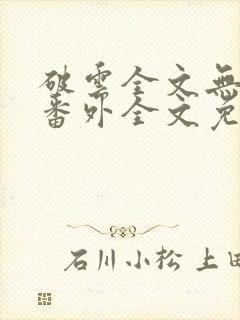 破云全文無
番外全文免
石川小松 上田